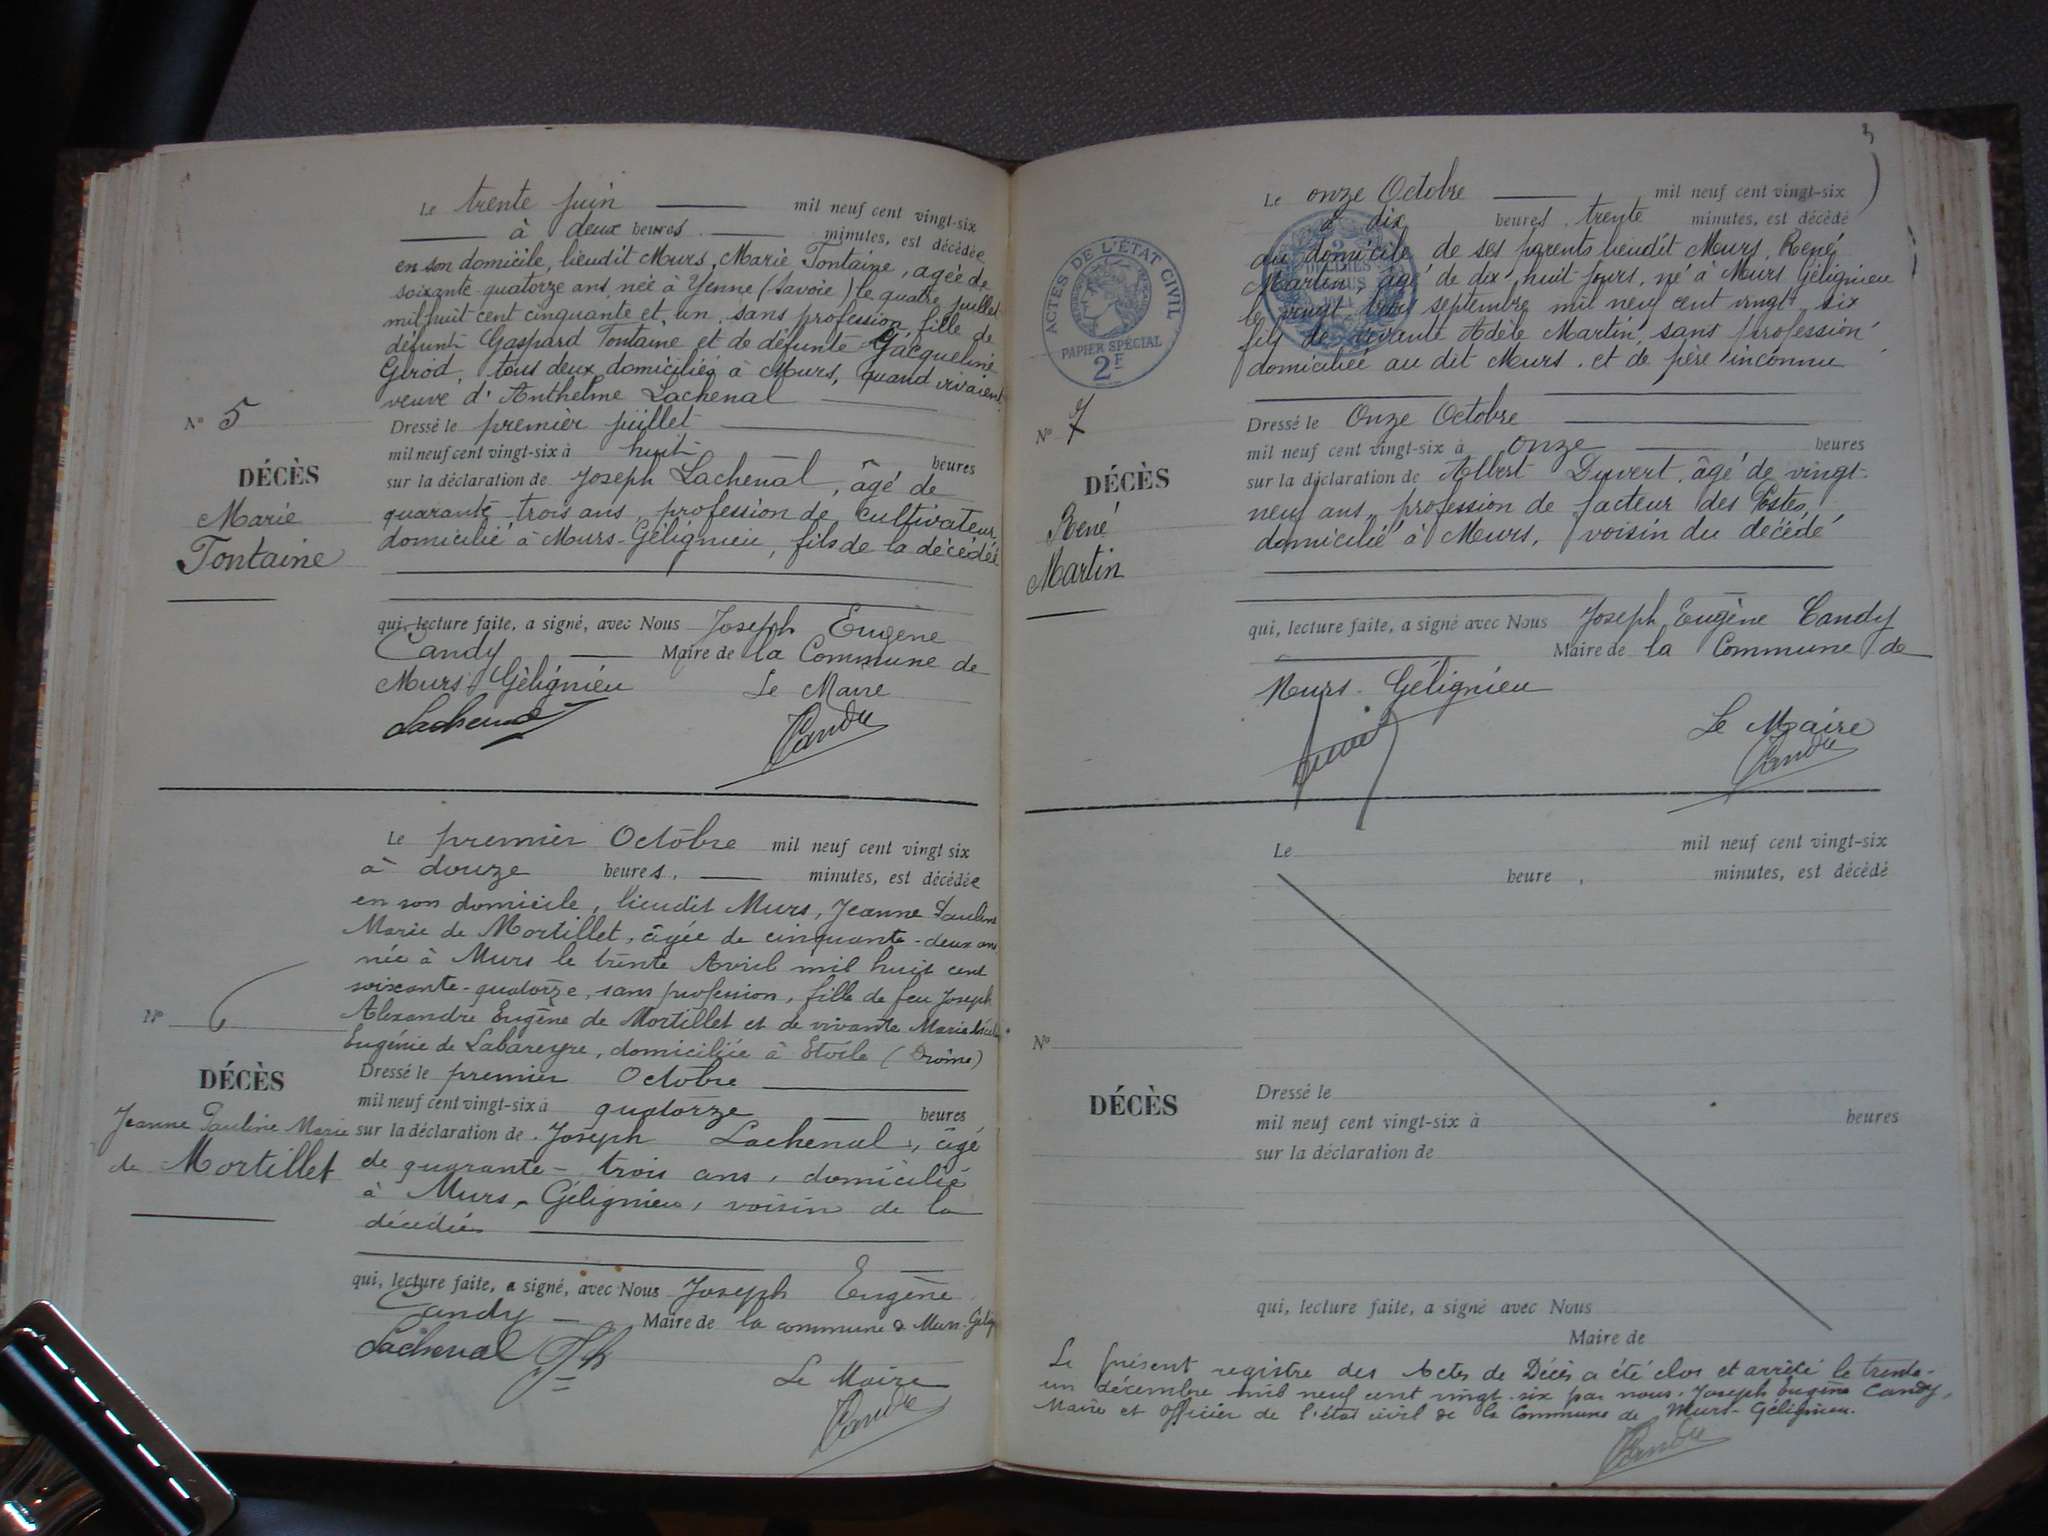 Le trente juin mil neuf cent vingt-six
à deux heures minutes, est décédée
en son domicile, lieudit Murs, Marie Fontaine, agée de
soixante-quatorze ans, née à Yenne (Savoie) le quatre juillet
mil huit cent cinquante et un, sans profession, fille de
défunt Gaspard Fontaine et de défunte Jacqueline
Girod, tous deux domiciliés à Murs, quand vivaient
veuve d'Anthelme Lachenal
N° 5
Dressé le premier juillet
mil neuf cent vingt-six à huit heures
DÉCÈS
sur la déclaration de Joseph Lachenal, âgé de
Marie
quarante-trois ans, profession de cultivateur,
Fontaine
domicilié à Murs-Gélignieu, fils de la décédée
qui, lecture faite, a signé, avec Nous Joseph Eugène
Candy Maire de la Commune de
Murs-Gélignieu Le Maire
Lachenal Candy
Le premier Octobre mil neuf cent vingt six
à douze heures, minutes, est décédée
en son domicile, lieudit Murs, Jeanne Pauline
Marie de Mortillet, âgée de cinquante-deux ans
née à Murs le trente Avril mil huit cent
soixante-quatorze, sans profession, fille de feu Joseph
Alexandre Eugène de Mortillet et de vivante Marie
Eugénie de Labareyre, domiciliée à Etoile (Drôme)
N° 6
DÉCÈS
Dressé le premier Octobre
mil neuf cent vingt-six à quatorze heures
Jeanne Pauline Marie
sur la déclaration de Joseph Lachenal, âgé
de Mortillet
de quarante-trois ans, domicilié
à Murs-Gélignieu, voisin de la
décédée
qui, lecture faite, a signé, avec Nous Joseph Eugène
Candy Maire de la commune de Murs-Gélig
Lachenal
Le Maire
Candy
3
Le onze Octobre mil neuf cent vingt-six
à dix heures, trente minutes, est décédé
au domicile de ses parents lieudit Murs, René
Martin, âgé de dix huit jours, né à Murs Gélignieu
le vingt trois septembre mil neuf cent vingt six
fils de vivante Adèle Martin, sans profession
domiciliée au dit Murs. et de père inconnu
ACTES DE L'ÉTAT CIVIL
PAPIER SPÉCIAL
2F
N° 7
Dressé le Onze Octobre
mil neuf cent vingt-six à onze heures
DÉCÈS
sur la déclaration de Albert Duvert, âgé de vingt
René
neuf ans, profession de facteur des Postes,
Martin
domicilié à Murs, voisin du décédé
qui, lecture faite, a signé avec Nous Joseph Eugène Candy
Maire de la Commune de
Murs-Gélignieu
Le Maire
Candy
Le mil neuf cent vingt-six
heure , minutes, est décédé
N°
DÉCÈS
Dressé le
mil neuf cent vingt-six à heures
sur la déclaration de
qui, lecture faite, a signé avec Nous
Maire de
Le présent registre des Actes de Décès a été clos et arrêté le trente-
un décembre mil neuf cent vingt-six par nous, Joseph Eugène Candy,
Maire et officier de l'état civil de la Commune de Murs-Gélignieu.
Candy